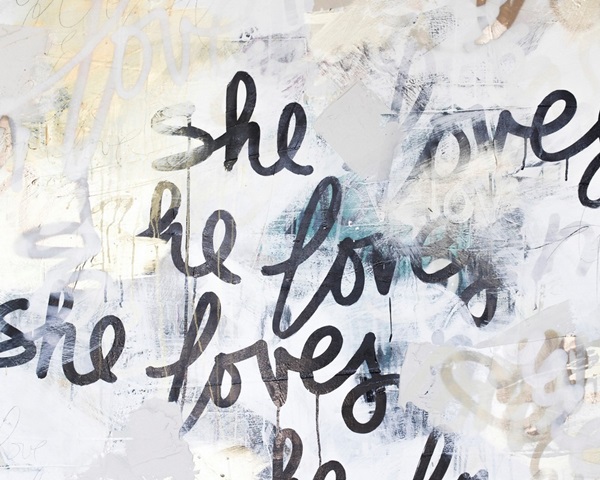 she loves
he loves
she loves
he lo